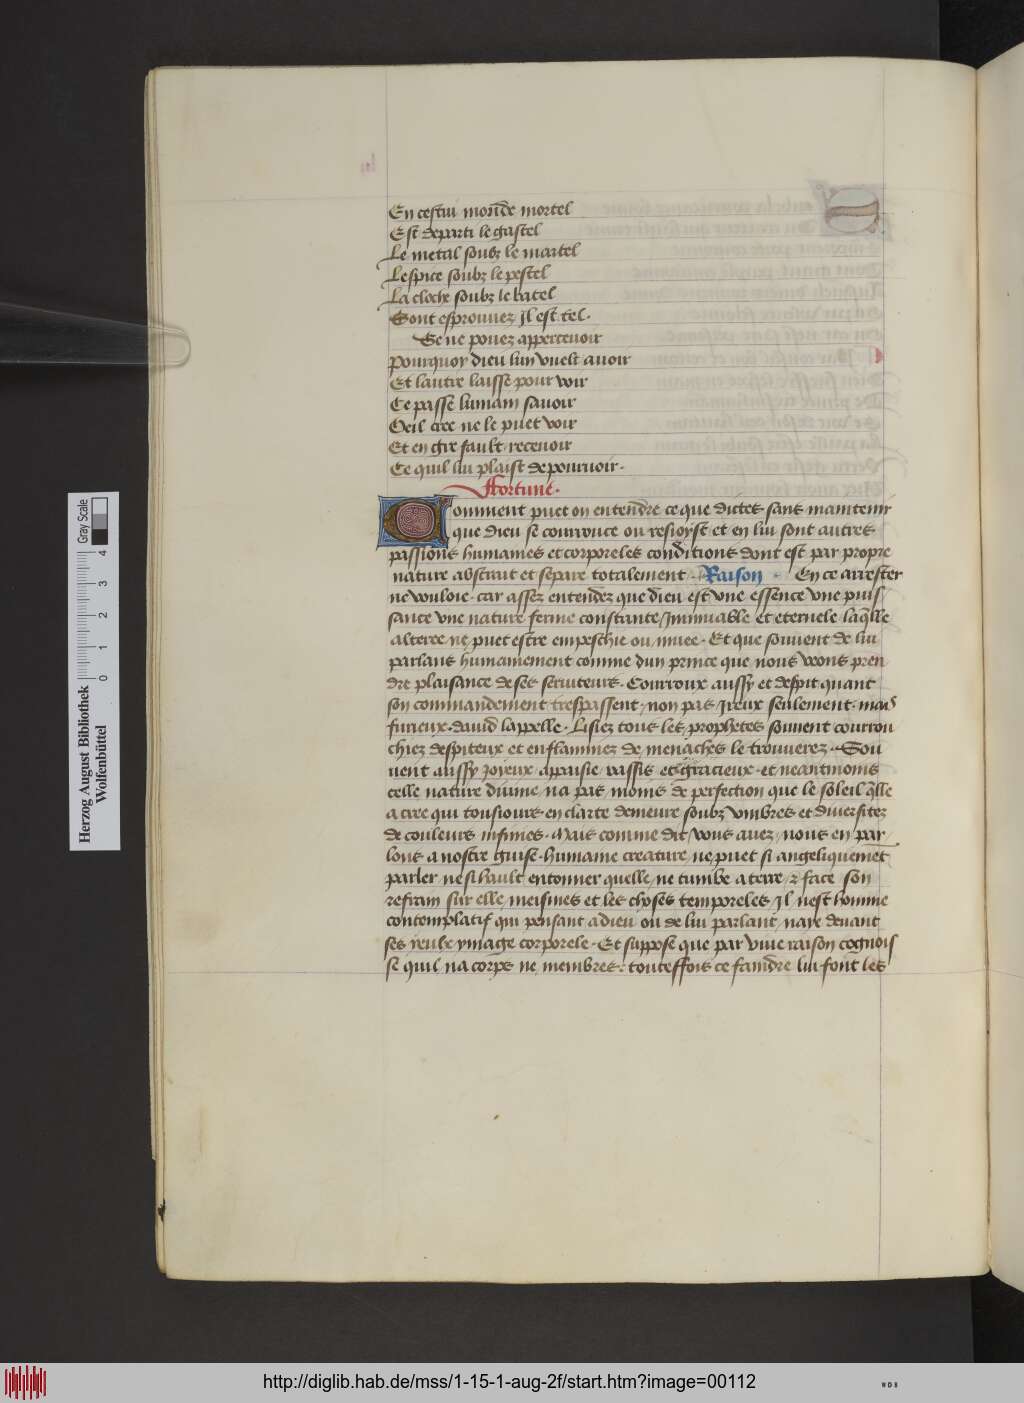 En cestui monde mortel
Est departi le gastel
Le metal soubz le martel
Lespice soubz le pestel
La cloche soubz le batel
Sont esprouuez Jl est tel.
Se ne pouez appercenoir
Pourquoy dieu lun vuelt auoir
Et lautre laisse pour voir
Ce passe lumain sauoir
Oeil cree ne le puet voir
Et en gre fault receuoir
Ce quil lui plaist de pouruoir.
Fortune.
Comment puet on entendre ce que dictes sans maintenir
que dieu se courrouce ou resioyst et en lui sont autres
passions humaines et corporeles conditions dont est par propre
nature abstrait et separe totalement. Raison. En ce arrester
ne vouloie. car assez entendez que dieu est vne essence vne puis
sance vne nature ferme constante Jmmuable et eternele laqlle
alteree ne puet estre empeschie ou muee. Et que souuent de lui
parlans humainement comme dun prince que nous veons pren
dre plaisance de ses seruiteurs. Courroux aussy et despit quant
son commandement trespassent. non pas Jreux seulement. mais
furieux dauid lappelle. Lisiez tous les prophetes souuent courrou
chiez despiteux et enflammez de menaches le trouuerez. Sou
uent aussy Joyeux appaisie rassis et gracieux. et neantmoins
celle nature diuine na pas moins de perfection que le soleil qlle
a cree qui tousiours en clarte demeure soubz vmbres et diuersitez
de couleurs infinies. Mais comme dit vous auez nous en par
lons a nostre guise. humaine creature ne puet si angeliquement
parler ne si hault entonner quelle ne tumbe a terre & face son
refrain sur elle meismes et les choses temporeles Jl nest homme
contemplatif qui pensant a dieu ou de lui parlant naye deuant
ses yeulx ymage corporele. Et suppose que par viue raison cognois
se quil na corps ne membres. touteffois ce faindre lui font les
Herzog August Bibliothek
Wolfenbüttel
Gray Scale
0 1 2 3 4
http://diglib.hab.de/mss/1-15-1-aug-2f/start.htm?image=00112